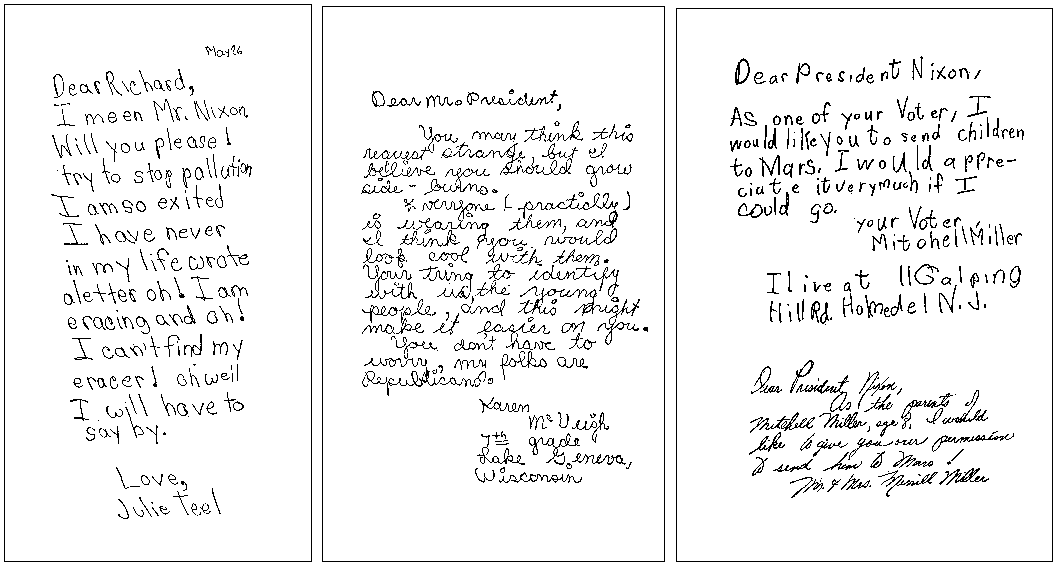 May 26
Dear Richard,
I meen Mr. Nixon
Will you please!
try to stop pollution
I am so exited
I have never
in my life wrote
aletter oh! I am
eracing and oh!
I can't find my
eracer! oh well
I will have to
say by.
Love,
Julie Teel
Dear Mr. President,
You may think this
request strange, but I
believe you should grow
side-burns.
Everyone (practically)
is wearing them, and
I think you would
look cool with them.
Your tring to identify
with us, the young
people, and this might
make it easier on you.
You don't have to
worry, my folks are
Republicans.
Karen
McVeigh
7th grade
Lake Geneva,
Wisconsin
Dear President Nixon,
As one of your Voter, I
would like you to send children
to Mars. I would appre-
ciate it very much if I
could go.
your Voter,
Mitchell Miller
I live at 11 Galping
Hill Rd. Holmedel N.J.
Dear President Nixon,
As the parents of
Mitchell Miller, age 8, I would
like to give you our permission
to send him to Mars!
Mr. & Mrs. Merrill Miller